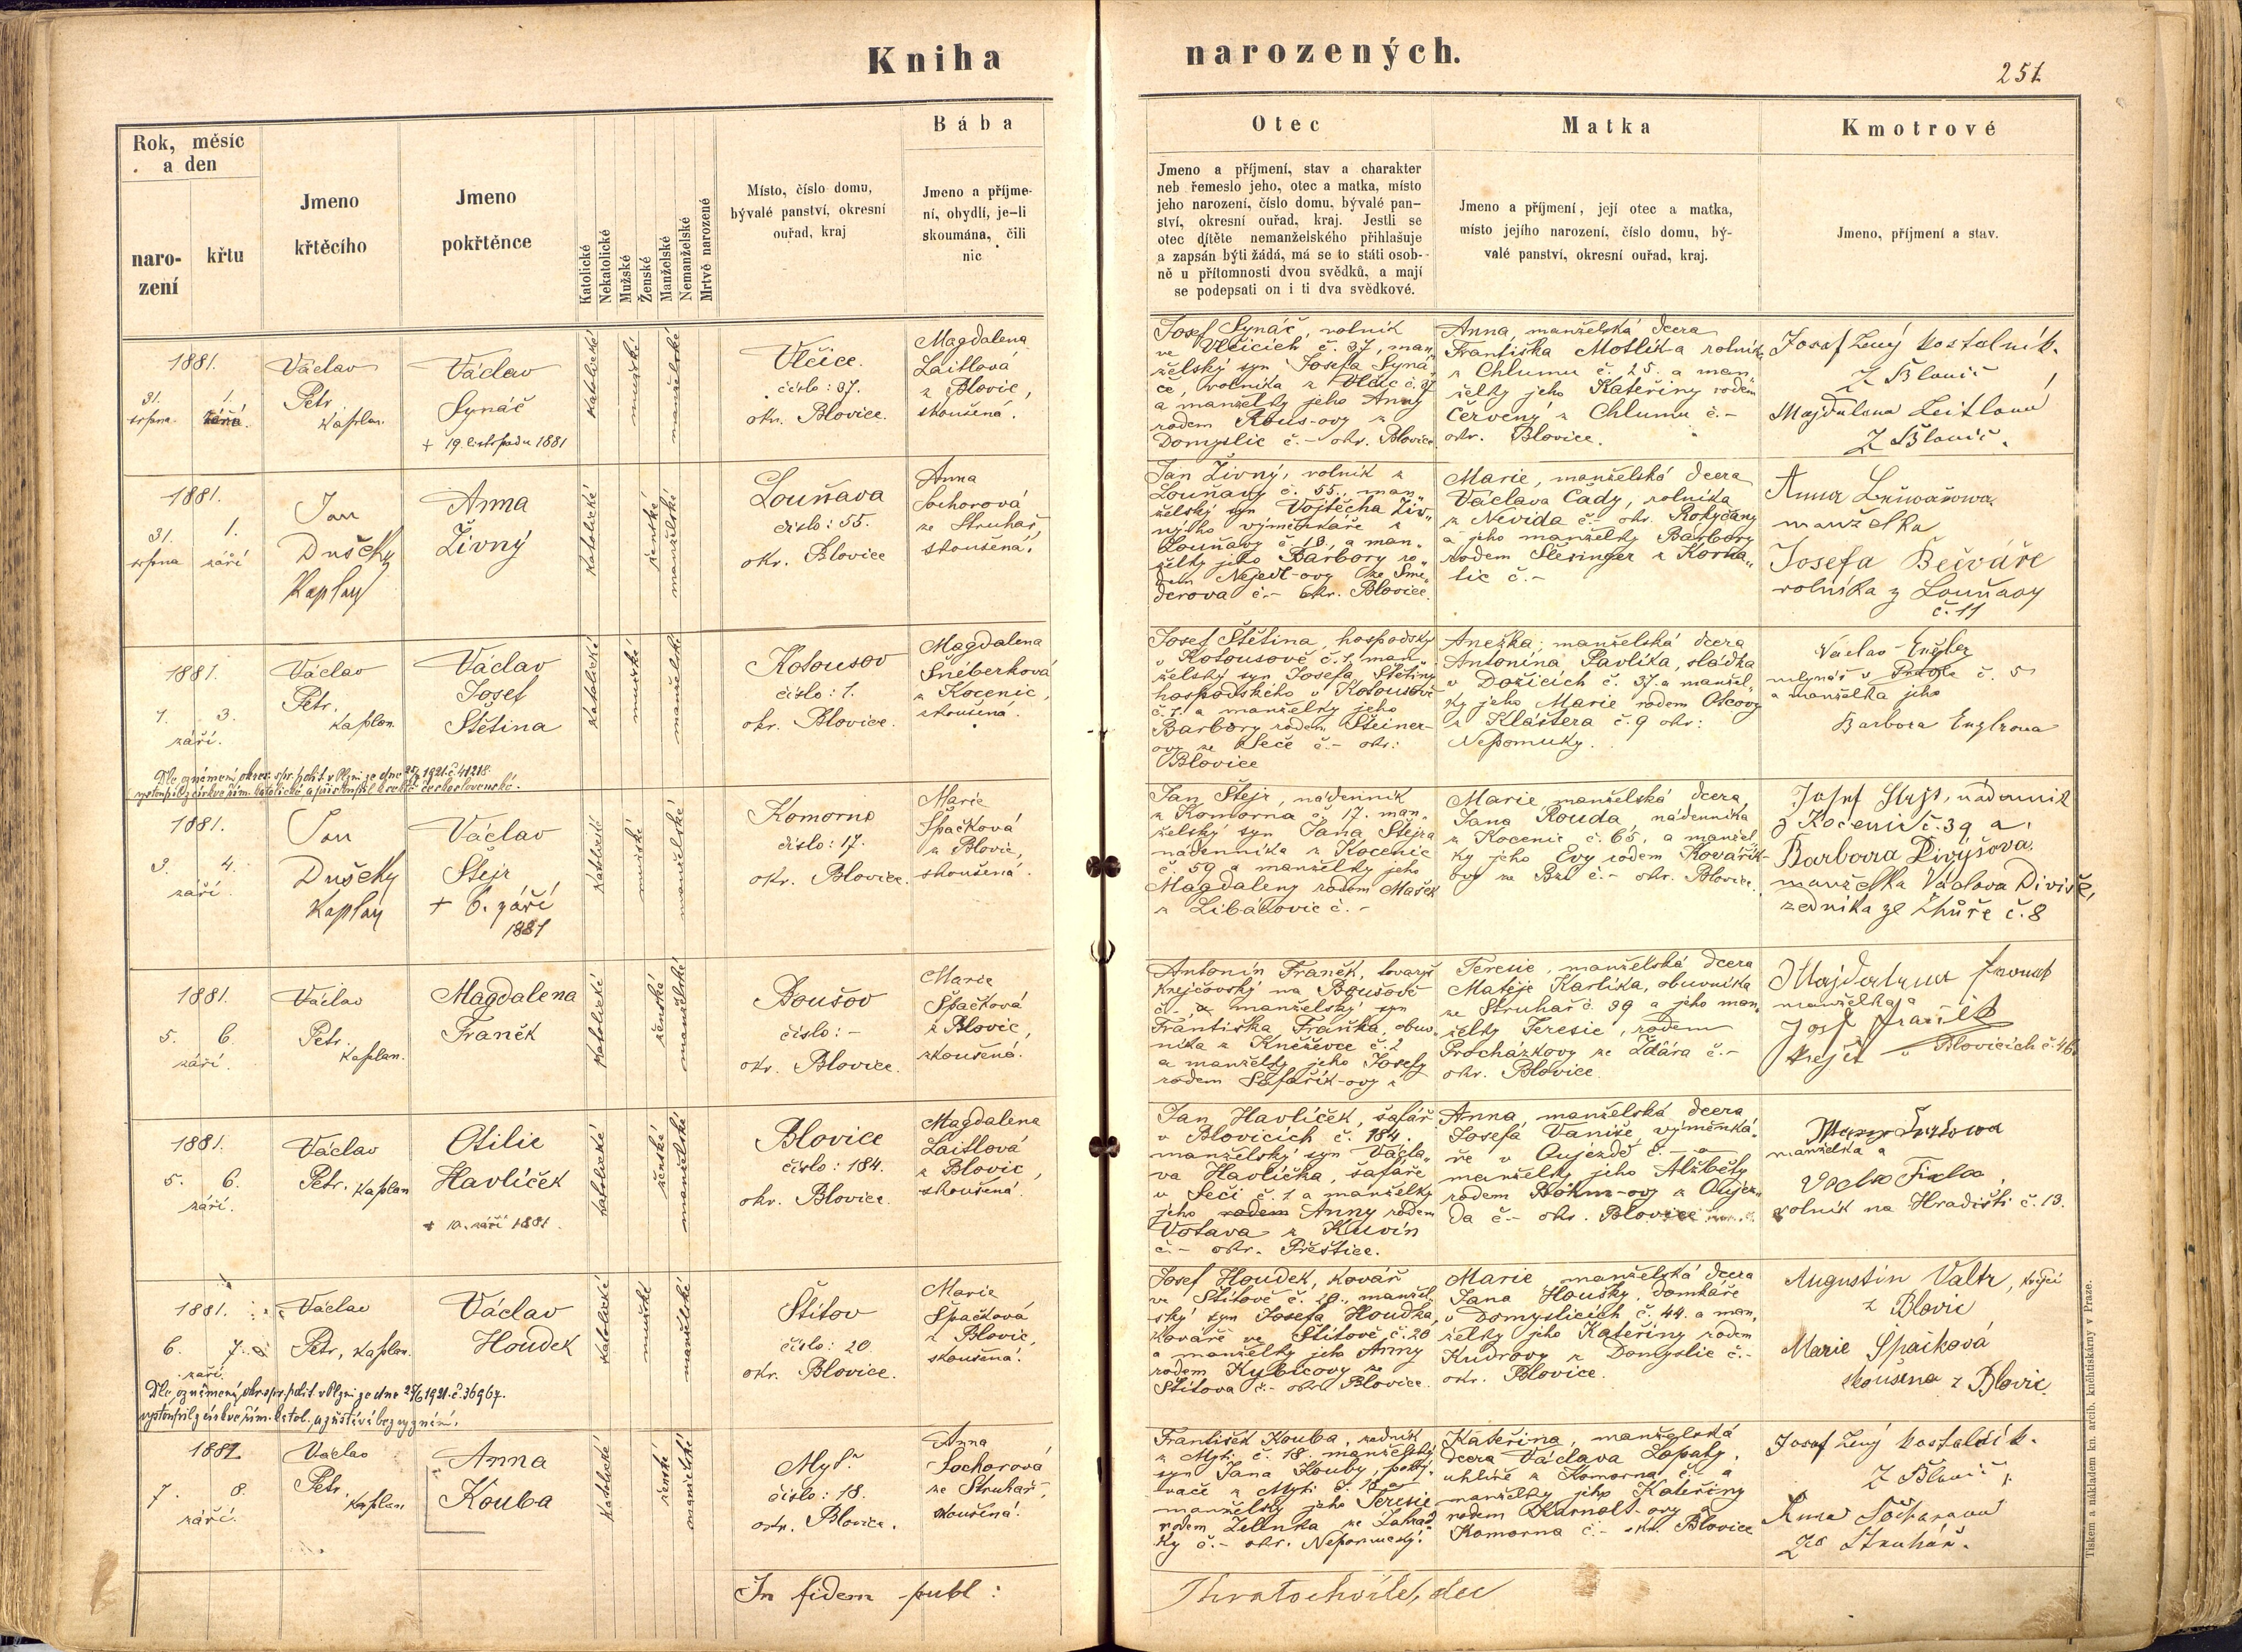 Kniha
narozených.
251.
Rok, měsíc
a den
naro-
zení
křtu
Jmeno
křtěcího
Jmeno
pokřtěnce
Katolické
Nekatolické
Mužské
Ženské
Manželské
Nemanželské
Mrtvě narozené
Místo, číslo domu,
bývalé panství, okresní
ouřad, kraj
Bába
Jmeno a příjme-
ní, obydlí, je-li
skoumána, čili
nic
Otec
Jmeno a příjmení, stav a charakter
neb řemeslo jeho, otec a matka, místo
jeho narození, číslo domu, bývalé pan-
ství, okresní ouřad, kraj. Jestli se
otec dítěte nemanželského přihlašuje
a zapsán býti žádá, má se to státi osob-
ně u přítomnosti dvou svědků, a mají
se podepsati on i ti dva svědkové.
Matka
Jmeno a příjmení, její otec a matka,
místo jejího narození, číslo domu, bý-
valé panství, okresní ouřad, kraj.
Kmotrové
Jmeno, příjmení a stav.
1881.
31. 1.
srpna září.
Václav
Petr
Kaplan.
Václav
Synáč
+ 19. listopadu 1881
katolické
mužské
manželské
Vlčice.
číslo: 37.
okr. Blovice.
Magdalena
Laitlová
z Blovic,
zkoušená.
Josef Synáč, rolník
ve Vlčicích č. 37, man„
želský syn Josefa Syná„
če, rolníka z Vlčic č. 37
a manželky jeho Anny
rodem Kous-ovy z
Domyslic č. - okr. Blovice
Anna, manželská dcera
Františka Motlík-a rolník„
z Chlumu č. 25. a man„
želky jeho Kateřiny rodem
Červený z Chlumu č. -
okr. Blovice.
Josef Zený kostelník.
Z Blovic
Majdalena Leitlová
Z Blovic.
1881.
31. 1.
srpna září
Jan
Dušek
Kaplan
Anna
Živný
katolické
ženské
manželské
Louňava
číslo: 55.
okr. Blovice
Anna
Sochorová
ze Struhař
zkoušená.
Jan Živný, rolník z
Louňavy č. 55., man„
želský syn Vojtěcha Živ„
ného výměnkáře z
Louňavy č. 18., a man„
želky jeho Barbory ro„
dem Nejedl-ovy ze Sme„
derova č. - okr. Blovice.
Marie, manželská dcera
Václava Cady, rolníka
z Nevida č. - okr. Rokycany
a jeho manželky Barbory
rodem Šlesinger z Korna„
tic č. -
Anna
manželka
Josefa Bečváře
rolníka z Louňavy
č. 11
1881.
1. 3.
září.
Václav
Petr.
kaplan
Václav
Josef
Štětina
katolické
mužské
manželské
Kotousov
číslo: 1.
okr. Blovice.
Magdalena
Šneberková
z Kocenic,
zkoušená.
Josef Štětina, hospodský
v Kotousově č. 1, man„
želský syn Josefa Štětiny
hospodského v Kotousově
č. 1. a manželky jeho
Barbory rodem Šteiner-
ovy ze Seče č. - okr:
Blovice
Anežka, manželská dcera
Antonína Pavlíka, sládka
v Dožicích č. 37. a manžel„
ky jeho Marie rodem Otcovy
z Kláštera č. 9 okr:
Nepomuky.
Václav Engler
mlynář v č. 5
a manželka jeho
Barbora Englrova
Dle oznámení okres. spr. polit. v Plzni ze dne 1921 č. 41218
vystoupil z církve řím. katolické a přistoupil k církvi československé.
1881.
3. 4.
září.
Jan
Dušek
Kaplan
Václav
Štejr
+ 6. září
1881
katolické
mužské
manželské
Komorno
číslo: 17.
okr. Blovice.
Marie
Špačková
z Blovic,
zkoušená.
Jan Štejr, nádenník
z Komorna č. 17. man„
želský syn Jana Štejra
nádenníka z Kocenic
č. 59 a manželky jeho
Magdaleny rodem Mašek
z Libákovic č. -
Marie, manželská dcera
Jana Rouda, nádenníka
z Kocenic č. 65, a manžel„
ky jeho Evy rodem Kovařík-
ovy ze Bzí č. - okr. Blovice.
Josef Štejr, nádenník
z Kocenic č. 39 a
Barbora Divýšova
manželka Václava Diviše,
zedníka ze Zhůře č. 8
1881.
5. 6.
září.
Václav
Petr.
Kaplan.
Magdalena
Franěk
katolické
ženské
manželské
Boušov
číslo: -
okr. Blovice.
Marie
Špačková
z Blovic,
zkoušená.
Antonín Franěk, tovaryš
krejčovský na Boušově
č. - a manželský syn
Františka Fraňka, obuv„
níka z Kněževce č. 2
a manželky jeho Josefy
rodem Šafařík-ovy z
Teresie, manželská dcera
Matěje Karlíka, obuvníka
ze Struhař č. 39 a jeho man„
želky Teresie, rodem
Procházkovy ze Ždára č. -
okr. Blovice.
Majdalena
manželka
Josf
krejčí v Blovicích č. 46
1881.
5. 6.
září.
Václav
Petr. kaplan
Otilie
Havlíček
+ 10. září 1881.
katolické
ženské
manželské
Blovice
číslo: 184.
okr. Blovice.
Magdalena
Laitlová
z Blovic,
zkoušená.
Jan Havlíček, šafář
v Blovicích č. 184.
manželský syn Václa„
va Havlíčka, šafáře
v Seči č. 1 a manželky
jeho rodem Anny rodem
Votava z Kuvín
č. - okr. Přeštice.
Anna, manželská dcera
Josefa Vaniše, výměnká„
ře v Oujezdě č. - a
manželky jeho Alžběty
rodem Böhm-ovy z Oujez„
da č. - okr. Blovice
manželka
rolník na Hradišti č. 13.
1881.
6. 7.
září.
Václav
Petr, kaplan.
Václav
Houdek
katolické
mužské
manželské
Štítov
číslo: 20.
okr. Blovice.
Marie
Špačková
z Blovic,
zkoušená.
Josef Houdek, kovář
ve Štítově č. 20., manžel„
ský syn Josefa Houdka,
kováře ve Štítově, č. 20
a manželky jeho Anny
rodem Kybicovy ze
Štítova č. - okr. Blovice.
Marie, manželská dcera
Jana Houšky, domkáře
v Domyslicích č. 44. a man„
želky jeho Kateřiny rodem
Kudrovy z Domyslic č. -
okr. Blovice.
Augustin Valtr, krejčí
z Blovic
Marie Špačková
zkoušena z Blovic
Dle oznámení okr. spr. polit. v Plzni ze dne 1921. č. 36967.
vystoupil z církve řím. katol., a zůstává bez vyznání.
1881
7. 8.
září.
Václav
Petr.
Kaplan
Anna
Kouba
katolické
ženské
manželské
Myť
číslo: 18.
okr. Blovice.
Anna
Sochorová
ze Struhař,
zkoušená.
František Kouba, zedník
z Myti č. 18. manželský
syn Jana Kouby, pokrý„
vače z Myti č. 18 a
manželky jeho Teresie
rodem Zelenka ze Zahrád„
ky č. - okr. Nepomucký.
Kateřina, manželská
dcera Václava Lopaty,
uhlíře z Komorna č. - a
manželky jeho Kateřiny
rodem Karnolt-ovy z
Komorna č. - okr. Blovice
Josef Zený kostelník.
Z Blovic
Anna Sochorová
ze Struhař.
In fidem publ:
Tiskem a nákladem kn. arcib. kněhtiskárny v Praze.